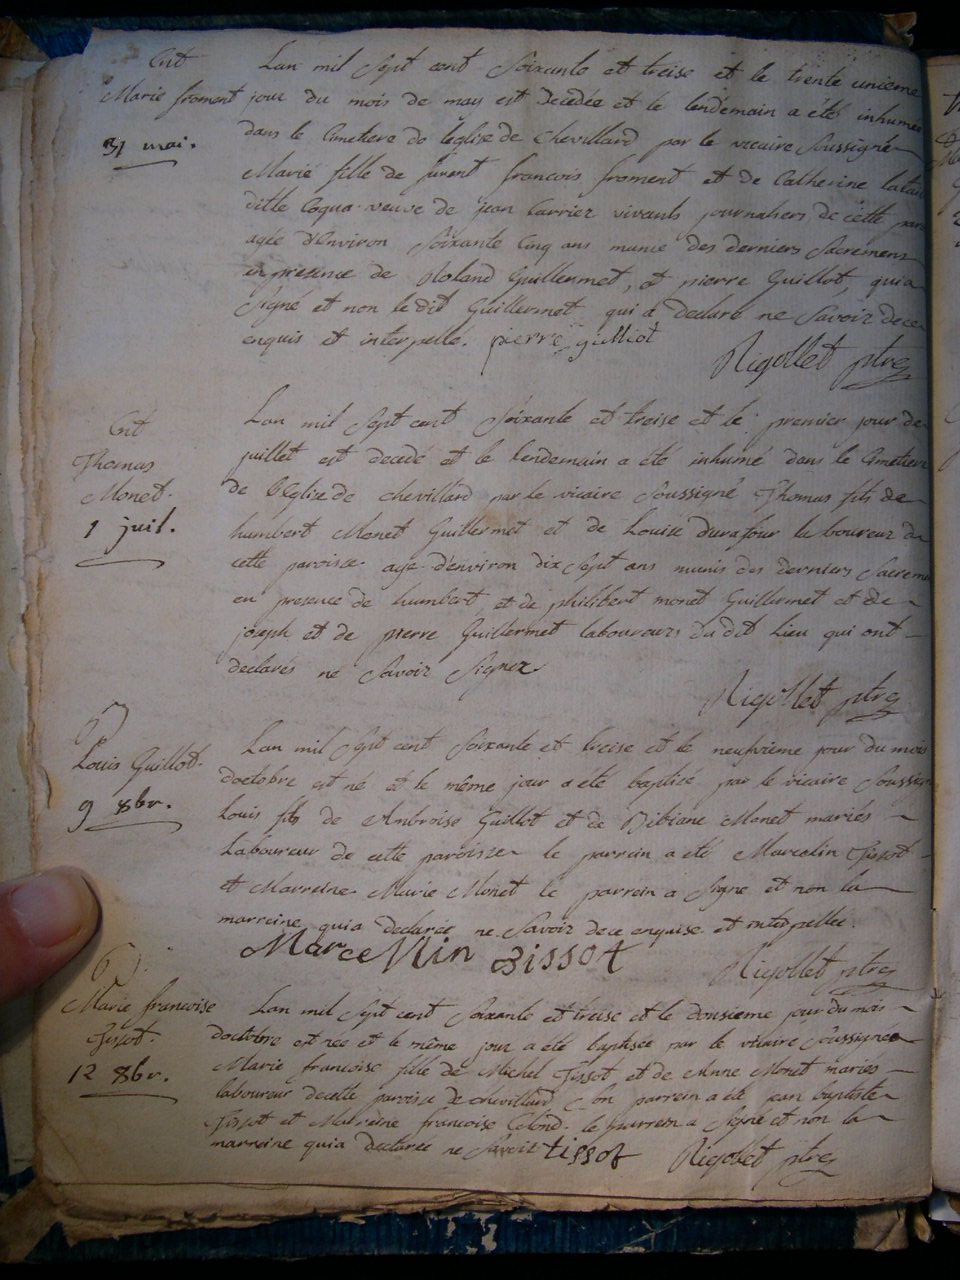 Ent
Marie froment
31 mai.
Lan mil Sept cent Soixante et treise et le trente unieme
jour du mois de may est decedée et le lendemain a été inhumée
dans le Cimetiere de léglise de Chevillard par le vicaire Soussigné
Marie fille de françois froment et de Catherine
ditte Coqua veuve de jean Carrier vivants journaliers de cette
agée d'Environ Soixante Cinq ans munie des derniers Sacremens
en presence de Roland Guillermet, et pierre Guillot, qui a
Signé et non le dit Guillermet qui a declaré ne Savoir de ce
enquis et interpellé. pierre guilliot
Rigollet ptre
Ent
Thomas
Monet.
1 juil.
Lan mil Sept cent Soixante et treise et le premier jour de
juillet est decedé et le lendemain a été inhumé dans le Cimetiere
de l'Eglise de chevillard par le vicaire Soussigné Thomas fils de
humbert Monet Guillermet et de Louise durafour laboureur de
cette paroisse agé d'environ dix Sept ans munis des derniers Sacremens
en presence de humbert, et de philibert monet Guillermet et de
joseph et de pierre Guillermet laboureurs du dit Lieu qui ont
declarés ne Savoir Signer
Rigollet ptre
B
Louis Guillot.
9 8br.
Lan mil Sept cent Soixante et treise et le neufvieme jour du mois
doctobre est né et le même jour a été baptisé par le vicaire Soussigné
Louis fils de Ambroise Guillot et de Bibiane Monet mariés
Laboureur de cette paroisse le parrein a été Marcelin Tissot
et Marreine Marie Monet le parrein a Signé et non la
marreine qui a declarée ne Savoir de ce enquise et interpellée.
Marcellin Tissot
Rigollet ptre
B
Marie francoise
Tissot.
12 8br.
Lan mil Sept cent Soixante et treise et le dousieme jour du mois
doctobre est née et le même jour a été baptisée par le vicaire Soussignée
Marie francoise fille de Michel Tissot et de Anne Monet mariés
laboureur de cette paroisse de chevillard Son parrein a été jean baptiste
Tissot et Marreine francoise le parrein a Signé et non la
marreine qui a declarée ne Savoir tissot
Rigollet ptre